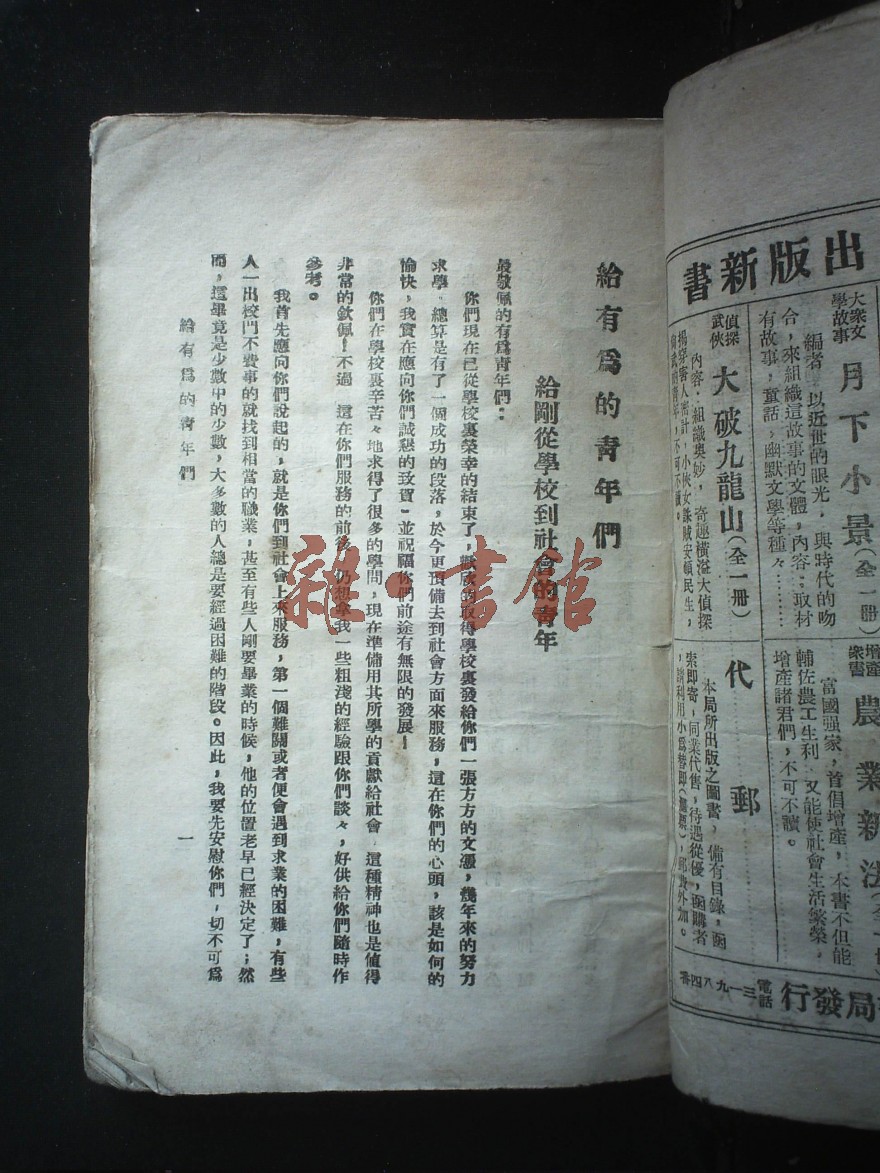 出版新書
大衆文學故事 月下小景(全一冊)
編者 以近世的眼光，與時代的吻
合，來組織這故事的文體，內容：取材
有故事，童話，幽默文學等種々……
增產叢書 農業新法(全一冊)
富國强家，首倡增產，本書不但能
輔佐農工生利 又能使社會生活繁榮，
增產諸君們，不可不讀。
偵探武俠 大破九龍山(全一冊)
內容：組織奧妙，奇趣橫溢大偵探
小俠女誅賊安頓民生，
不可不讀。
代郵
本局所出版之圖書，備有目錄，函
索即寄，同業代售，待遇從優，函購者
，請利用小爲替即(滙票)，郵費外加。
局發行 電話三一九八四番
給有爲的靑年們
給剛從學校到社會的靑年
最敬佩的有爲靑年們：
你們現在已從學校裏榮幸的結束了，取得學校裏發給你們一張方方的文憑，幾年來的努力
求學。總算是有了一個成功的段落，於今更預備去到社會方面來服務，這在你們的心頭，該是如何的
愉快，我實在應向你們誠懇的致賀！並祝福你們前途有無限的發展！
你們在學校裏辛苦々地求得了很多的學問，現在準備用其所學的貢獻給社會 這種精神也是値得
非常的欽佩！不過 這在你們服務的前後 仍想拿我一些粗淺的經驗跟你們談々，好供給你們隨時作
參考。
我首先應向你們說起的，就是你們到社會上來服務，第一個難關或者便會遇到求業的困難，有些
人一出校門不費事的就找到相當的職業，甚至有些人剛要畢業的時候，他的位置老早已經決定了；然
而，這畢竟是少數中的少數，大多數的人總是要經過困難的階段。因此，我要先安慰你們，切不可爲
給有爲的靑年們
一
雜書館